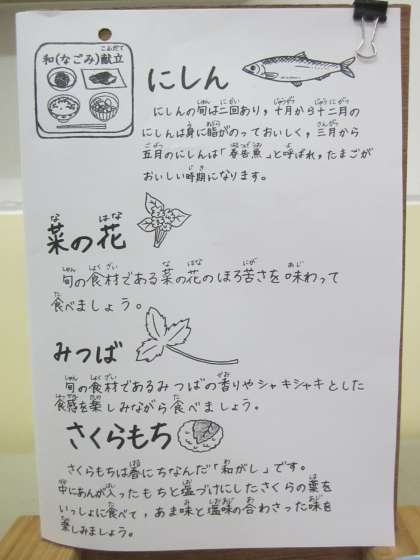 和(なごみ)献立
にしん
にしんの旬は二回あり，十月から十二月の
にしんは身に脂がのっておいしく，三月から
五月のにしんは「春告魚」と呼ばれ，たまごが
おいしい時期になります。
菜の花
旬の食材である菜の花のほろ苦さを味わって
食べましょう。
みつば
旬の食材であるみつばの香りやシャキシャキとした
食感を楽しみながら食べましょう。
さくらもち
さくらもちは春にちなんだ「和がし」です。
中にあんが入ったもちと塩づけにしたさくらの葉を
いっしょに食べて，あま味と塩味の合わさった味を
楽しみましょう。